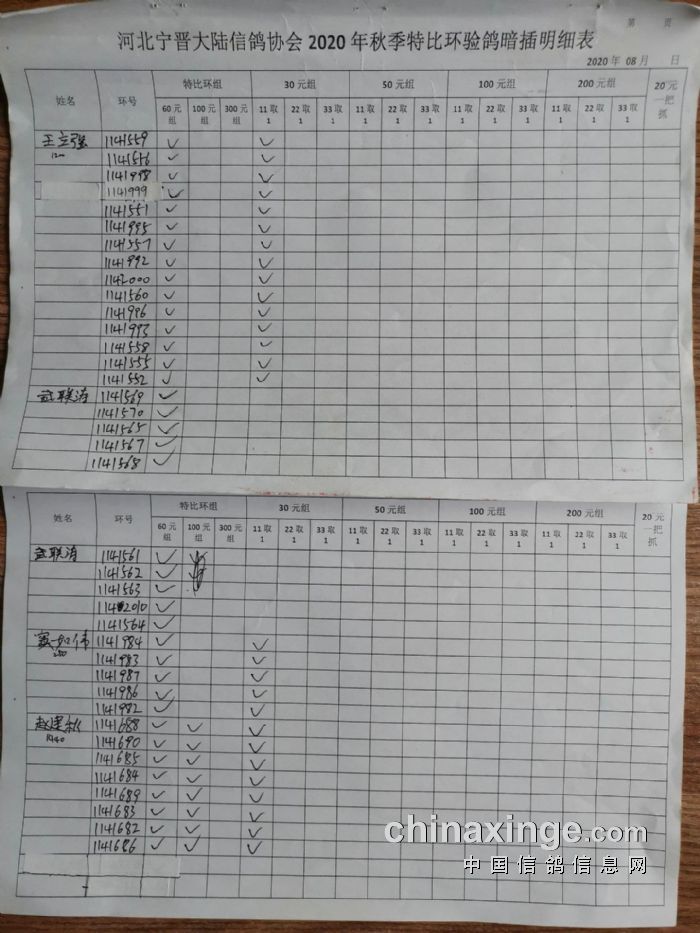 第 页
河北宁晋大陆信鸽协会 2020 年秋季特比环验鸽暗插明细表
2020 年 08 月 日
姓名 环号 特比环组 30 元组 50 元组 100 元组 200 元组 20 元一把抓
60 元组 100 元组 300 元组 11 取 1 22 取 1 33 取 1 11 取 1 22 取 1 33 取 1 11 取 1 22 取 1 33 取 1 11 取 1 22 取 1 33 取 1
王立强 1141559 ✓ ✓
120 1141556 ✓ ✓
1141998 ✓ ✓
1141999 ✓ ✓
1141551 ✓ ✓
1141995 ✓ ✓
1141557 ✓ ✓
1141992 ✓ ✓
1142000 ✓ ✓
1141560 ✓ ✓
1141996 ✓ ✓
1141993 ✓ ✓
1141558 ✓ ✓
1141555 ✓ ✓
1141552 ✓ ✓
联涛 1141569 ✓
1141570 ✓
1141565 ✓
1141567 ✓
1141568 ✓
姓名 环号 特比环组 30 元组 50 元组 100 元组 200 元组 20 元一把抓
60 元组 100 元组 300 元组 11 取 1 22 取 1 33 取 1 11 取 1 22 取 1 33 取 1 11 取 1 22 取 1 33 取 1 11 取 1 22 取 1 33 取 1
联涛 1141561 ✓
1141562 ✓
1141563 ✓
1142010 ✓
1141564 ✓
如伟 1141984 ✓ ✓
1141983 ✓ ✓
1141987 ✓ ✓
1141986 ✓ ✓
1141982 ✓ ✓
赵建秋 1141688 ✓ ✓ ✓
1141690 ✓ ✓ ✓
1141685 ✓ ✓ ✓
1141684 ✓ ✓ ✓
1141689 ✓ ✓ ✓
1141683 ✓ ✓ ✓
1141682 ✓ ✓ ✓
1141686 ✓ ✓ ✓
chinaxinge.com
中国信鸽信息网